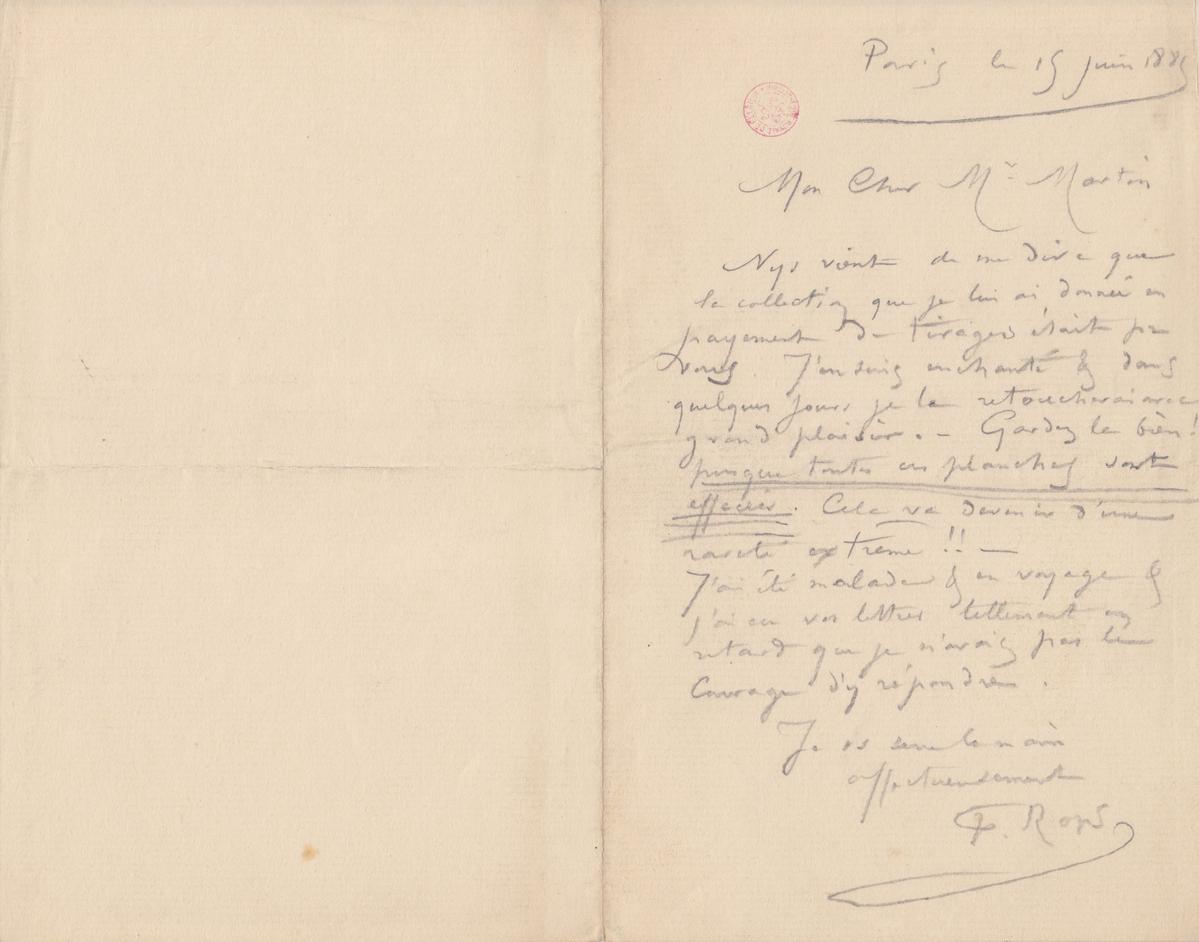 Paris le 15 juin 1885
Mon Cher Mr Martin
Nys vient de me dire que
la collection que je lui ai donnée en
payement de tirages était pr
vous. J'en suis enchanté & dans
quelques jours je la retoucherai avec
grand plaisir. – Gardez la bien!
puisque toutes ces planches sont
effacées. Cela va devenir d'une
rareté extrême !! –
J'ai été malade & en voyage &
j'ai eu vos lettres tellement en
retard que je n'avais pas le
Courage d'y répondre.
Je vs serre la main
affectueusement
F. Rops